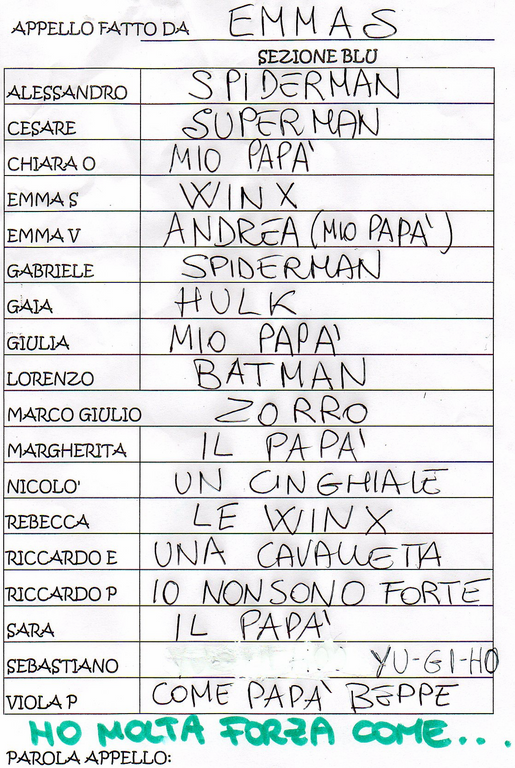 APPELLO FATTO DA EMMA S
SEZIONE BLU
ALESSANDRO SPIDERMAN
CESARE SUPERMAN
CHIARA O MIO PAPA'
EMMA S WINX
EMMA V ANDREA (MIO PAPA')
GABRIELE SPIDERMAN
GAIA HULK
GIULIA MIO PAPA'
LORENZO BATMAN
MARCO GIULIO ZORRO
MARGHERITA IL PAPA'
NICOLO' UN CINGHIALE
REBECCA LE WINX
RICCARDO E UNA CAVALLETTA
RICCARDO P IO NON SONO FORTE
SARA IL PAPA'
SEBASTIANO YU-GI-HO
VIOLA P COME PAPA' BEPPE
HO MOLTA FORZA COME...
PAROLA APPELLO: